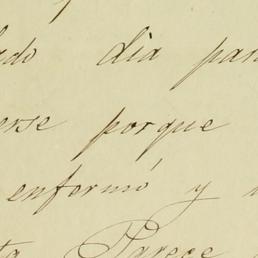 día par
erse porque
enfermó y
Parece